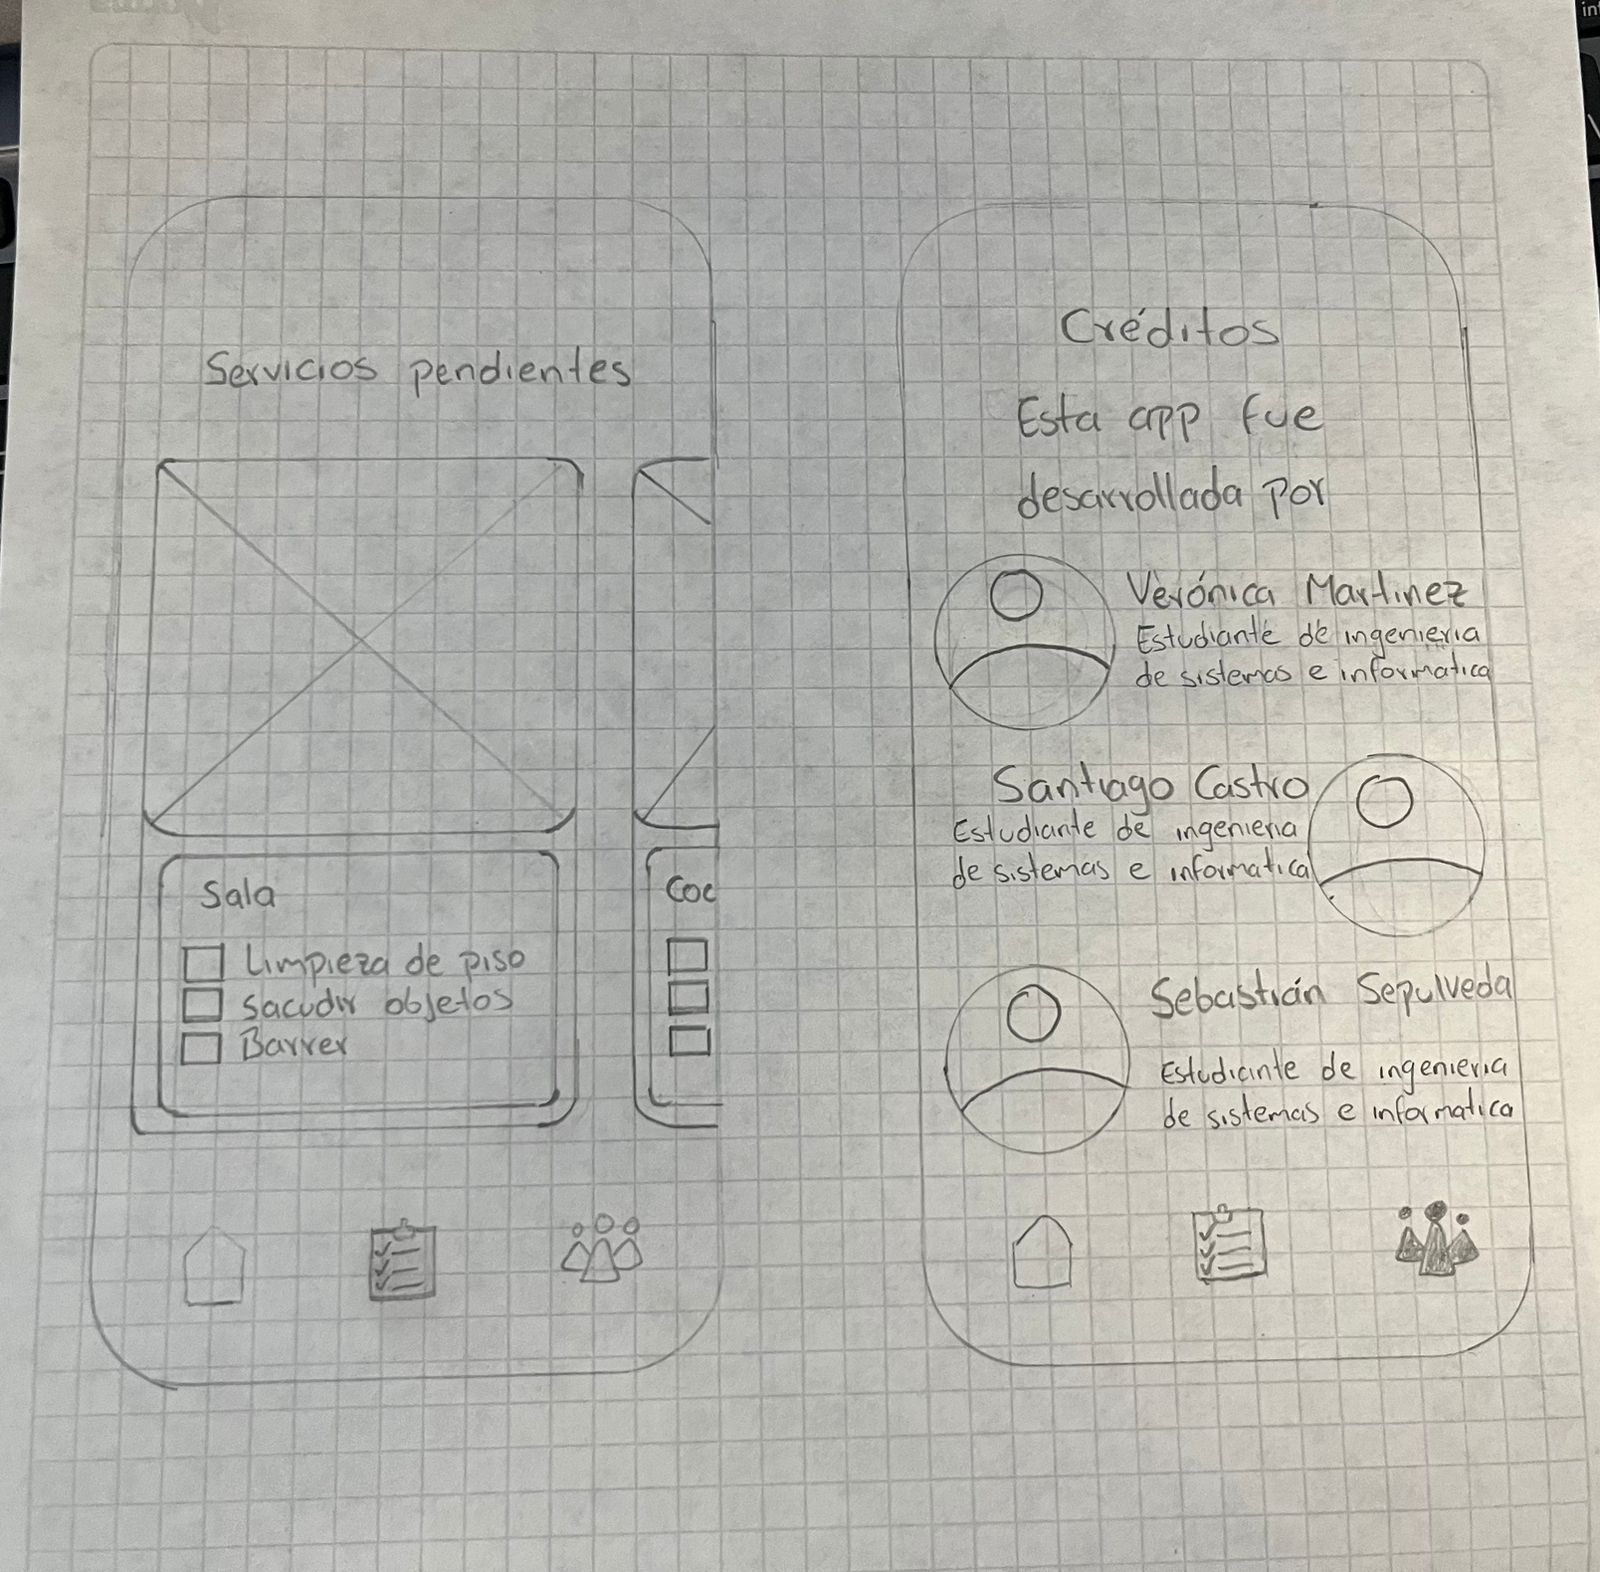 Servicios pendientes
Sala
Limpieza de piso
sacudir objetos
Barrer
Coc
Créditos
Esta app fue
desarrollada por
Verónica Martinez
Estudiante de ingenieria
de sistemas e informatica
Santiago Castro
Estudiante de ingenieria
de sistemas e informatica
Sebastián Sepulveda
Estudiante de ingenieria
de sistemas e informatica